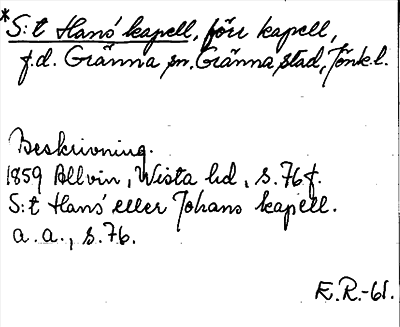 *S:t Hans' kapell, förr kapell,
f.d. Gränna sn. Gränna stad, Jönk.l.
Beskrivning.
1859 Allvin, Wista hd, s.76f.
S:t Hans' eller Johans kapell.
a.a., s.76.
E.R.-61.